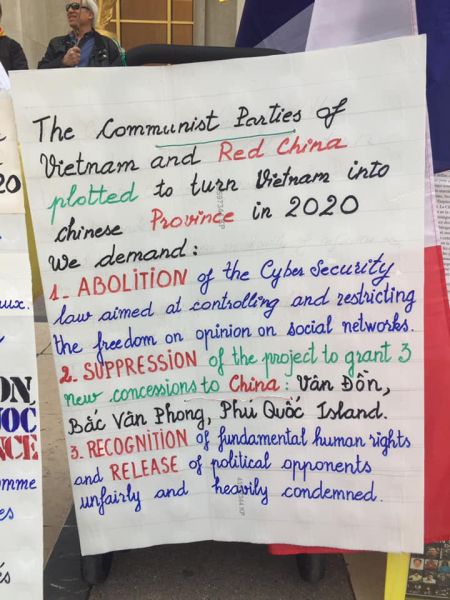 The Communist Parties of
Vietnam and Red China
plotted to turn Vietnam into
chinese Province in 2020
We demand:
1- ABOLITION of the Cyber Security
law aimed at controlling and restricting
the freedom on opinion on social networks.
2. SUPPRESSION of the project to grant 3
new concessions to China: Vân Đồn,
Bắc Vân Phong, Phú Quốc Island.
3. RECOGNITION of fundamental human rights
and RELEASE of political opponents
unfairly and heavily condemned.